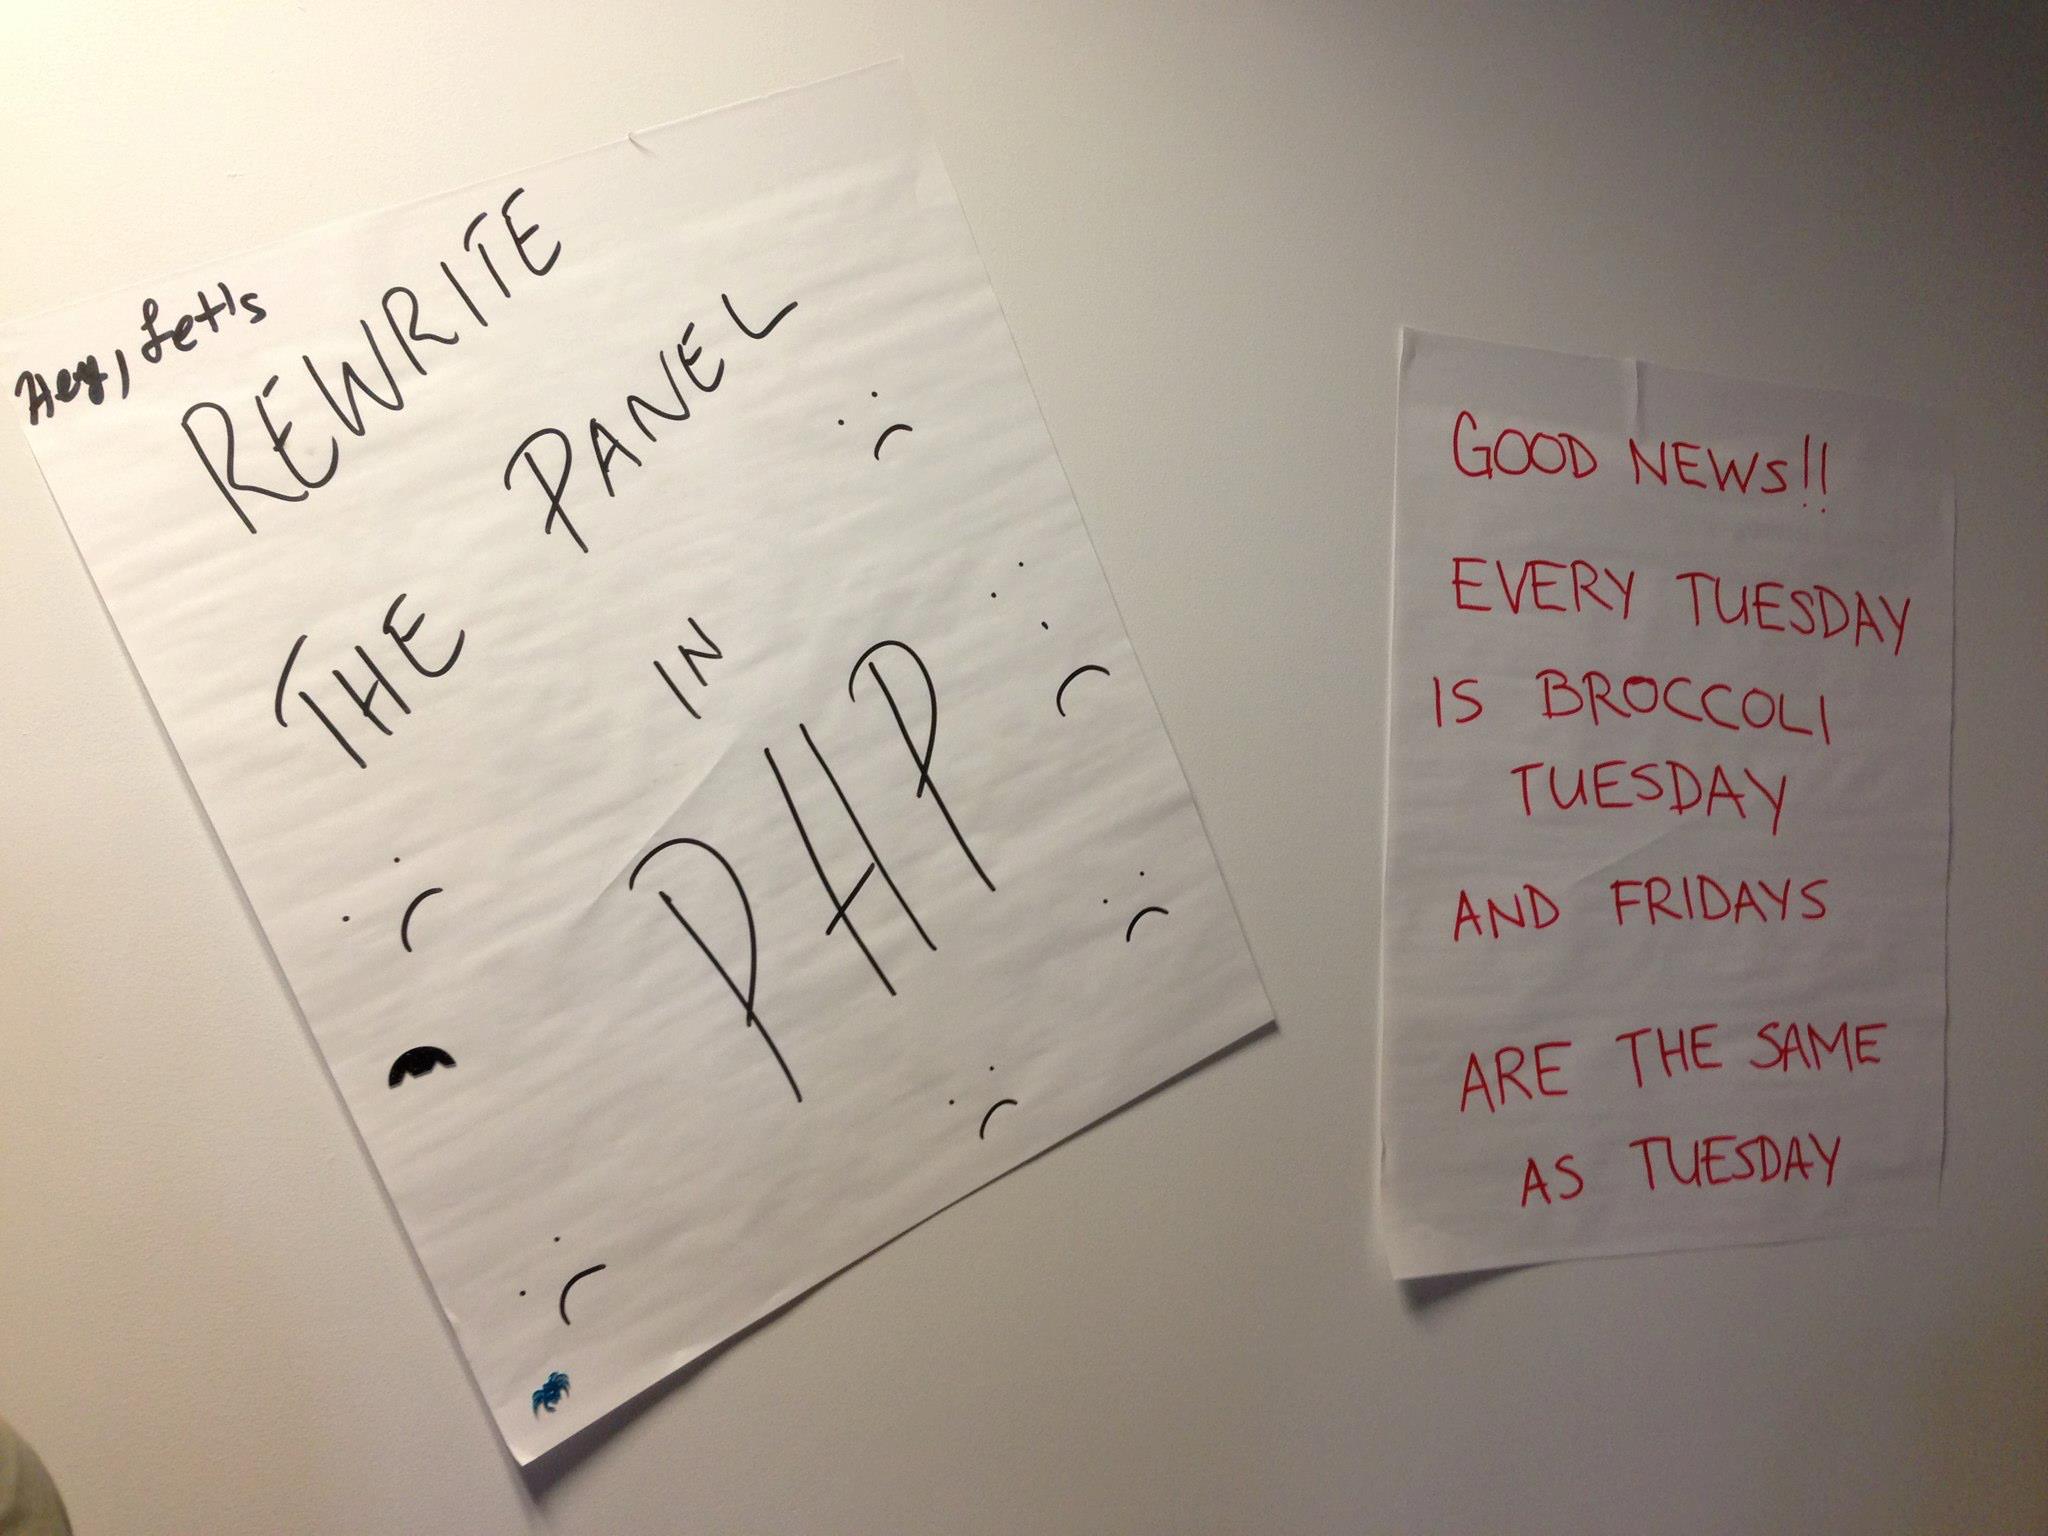 Hey, Let's
REWRITE
THE PANEL
IN
PHP
GOOD NEWS!!
EVERY TUESDAY
IS BROCCOLI
TUESDAY
AND FRIDAYS
ARE THE SAME
AS TUESDAY